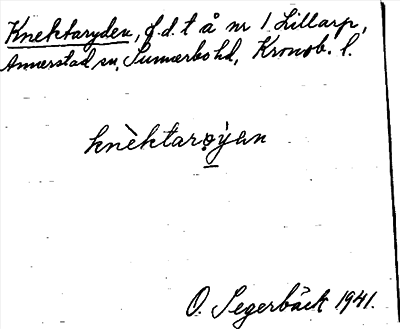 Knektaryden, f.d. t å nr 1 Lillarp,
Annerstad sn, Sunnerbo hd, Kronob. l.
knèktarøýan
O. Segerbäck 1941.